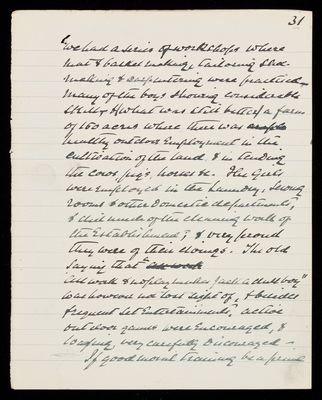 31
"We had a series of workshops where
mat & basket making, tailoring shoe
making & carpentering were practised,
many of the boys showing considerable
skill, & (what was still better) a farm
of 160 acres where there was
healthy outdoor employment in the
cultivation of the land, & in tending
the cows, pigs, horses &c. The Girls
were employed in the Laundry, Sewing
room & other Domestic departments,
& did much of the cleaning work of
the Establishment, & very proud
they were of their doings. The old
saying that "all work
all work & no play makes Jack a dull boy"
was however not lost sight of, & besides
frequent set Entertainments, active
outdoor games were encouraged, &
loafing very carefully discouraged —
If good moral training be a prime